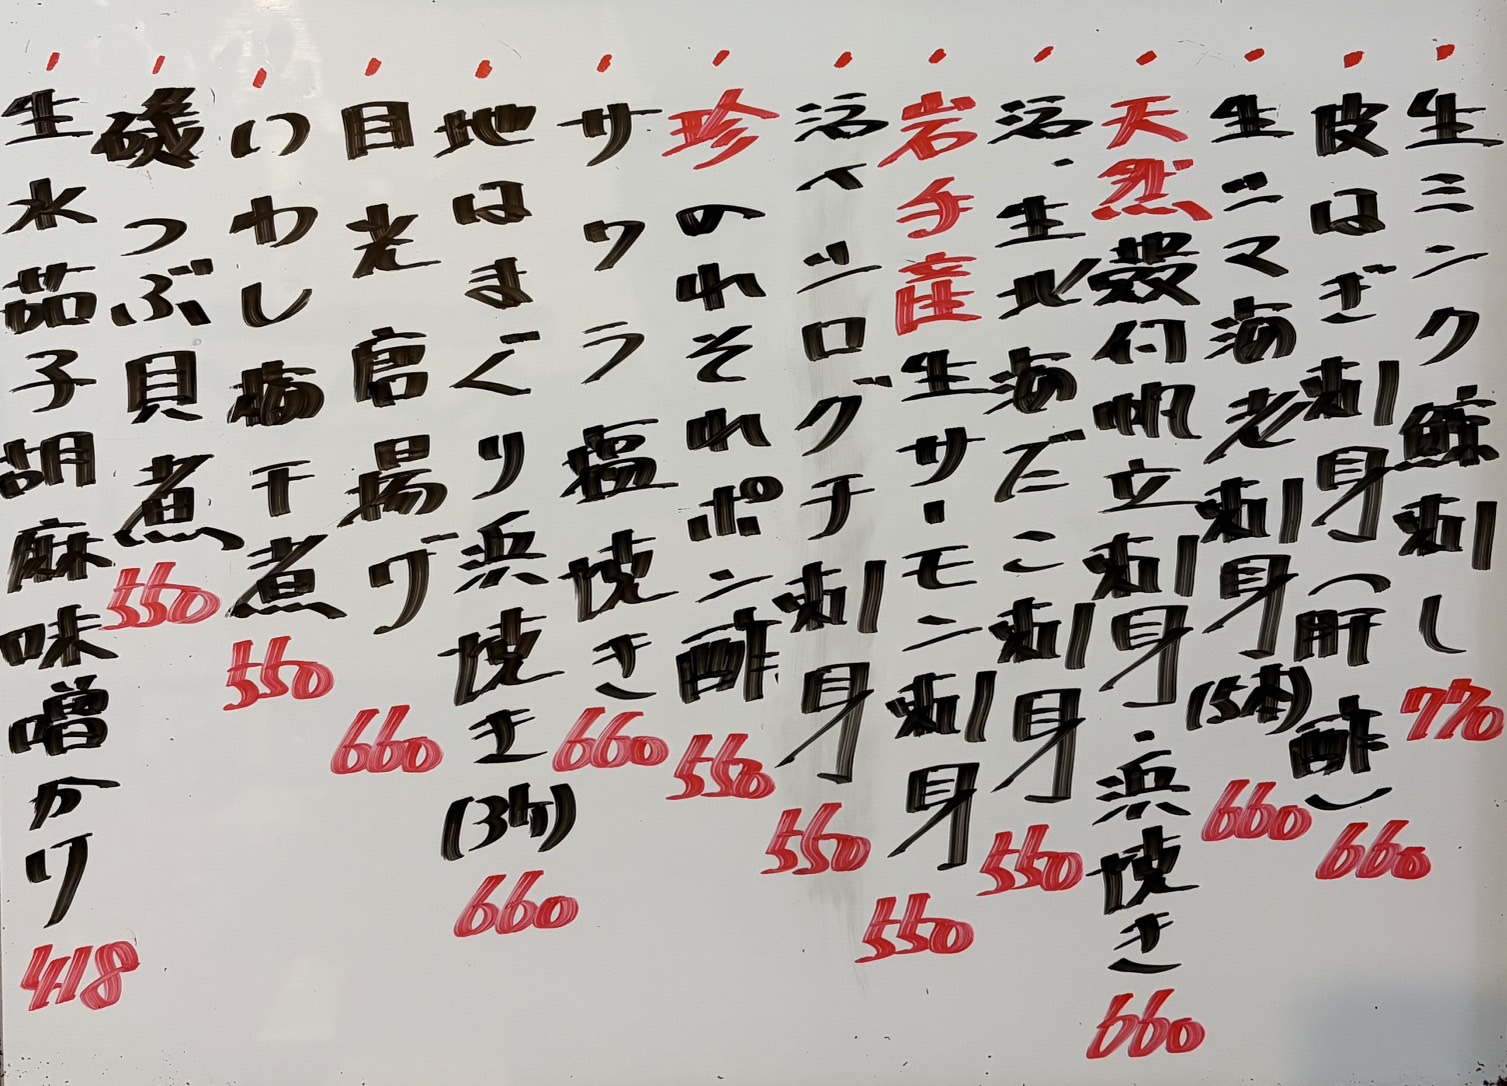 ・生ミンク鯨刺し 770
・皮はぎ刺身(肝酢) 660
・生ニマ海老刺身(5本) 660
・天然殻付帆立刺身・浜焼き 660
・活・生北海だこ刺身 550
・岩手産生サーモン刺身 550
・活〆ジログチ刺身 550
・珍のれそれポン酢 550
・サワラ塩焼き 660
・地はまぐり浜焼き(3ケ) 660
・目光唐揚げ 660
・いわし梅干煮 550
・磯つぶ貝煮 550
・生水茄子胡麻味噌かり 418